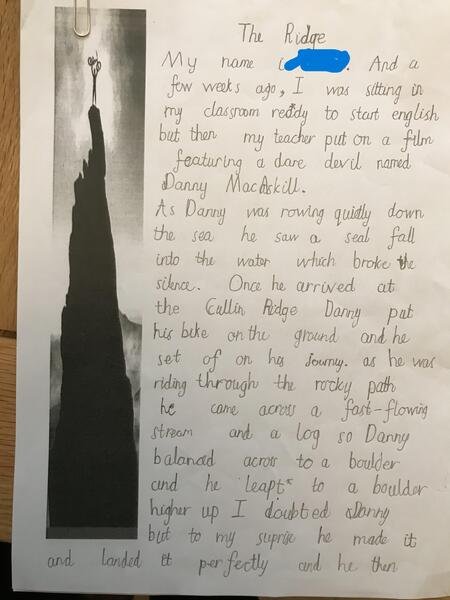 The Ridge
My name i . And a
few weeks ago, I was sitting in
my classroom ready to start english
but then my teacher put on a film
featuring a dare devil named
Danny MacAskill.
As Danny was rowing quietly down
the sea he saw a seal fall
into the water which broke the
silence. Once he arrived at
the Cullin Ridge Danny put
his bike on the ground and he
set of on his Journey. as he was
riding through the rocky path
he came across a fast-flowing
stream and a log so Danny
balanced across to a boulder
and he leapt to a boulder
higher up I doubted Danny
but to my suprise he made it
and landed it perfectly and he then